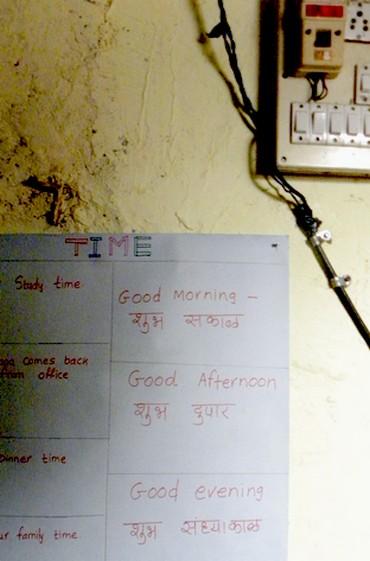 TIME
Study time
comes back
from office
Dinner time
family time
Good Morning –
शुभ सकाळ
Good Afternoon
शुभ दुपार
Good evening
शुभ संध्याकाळ